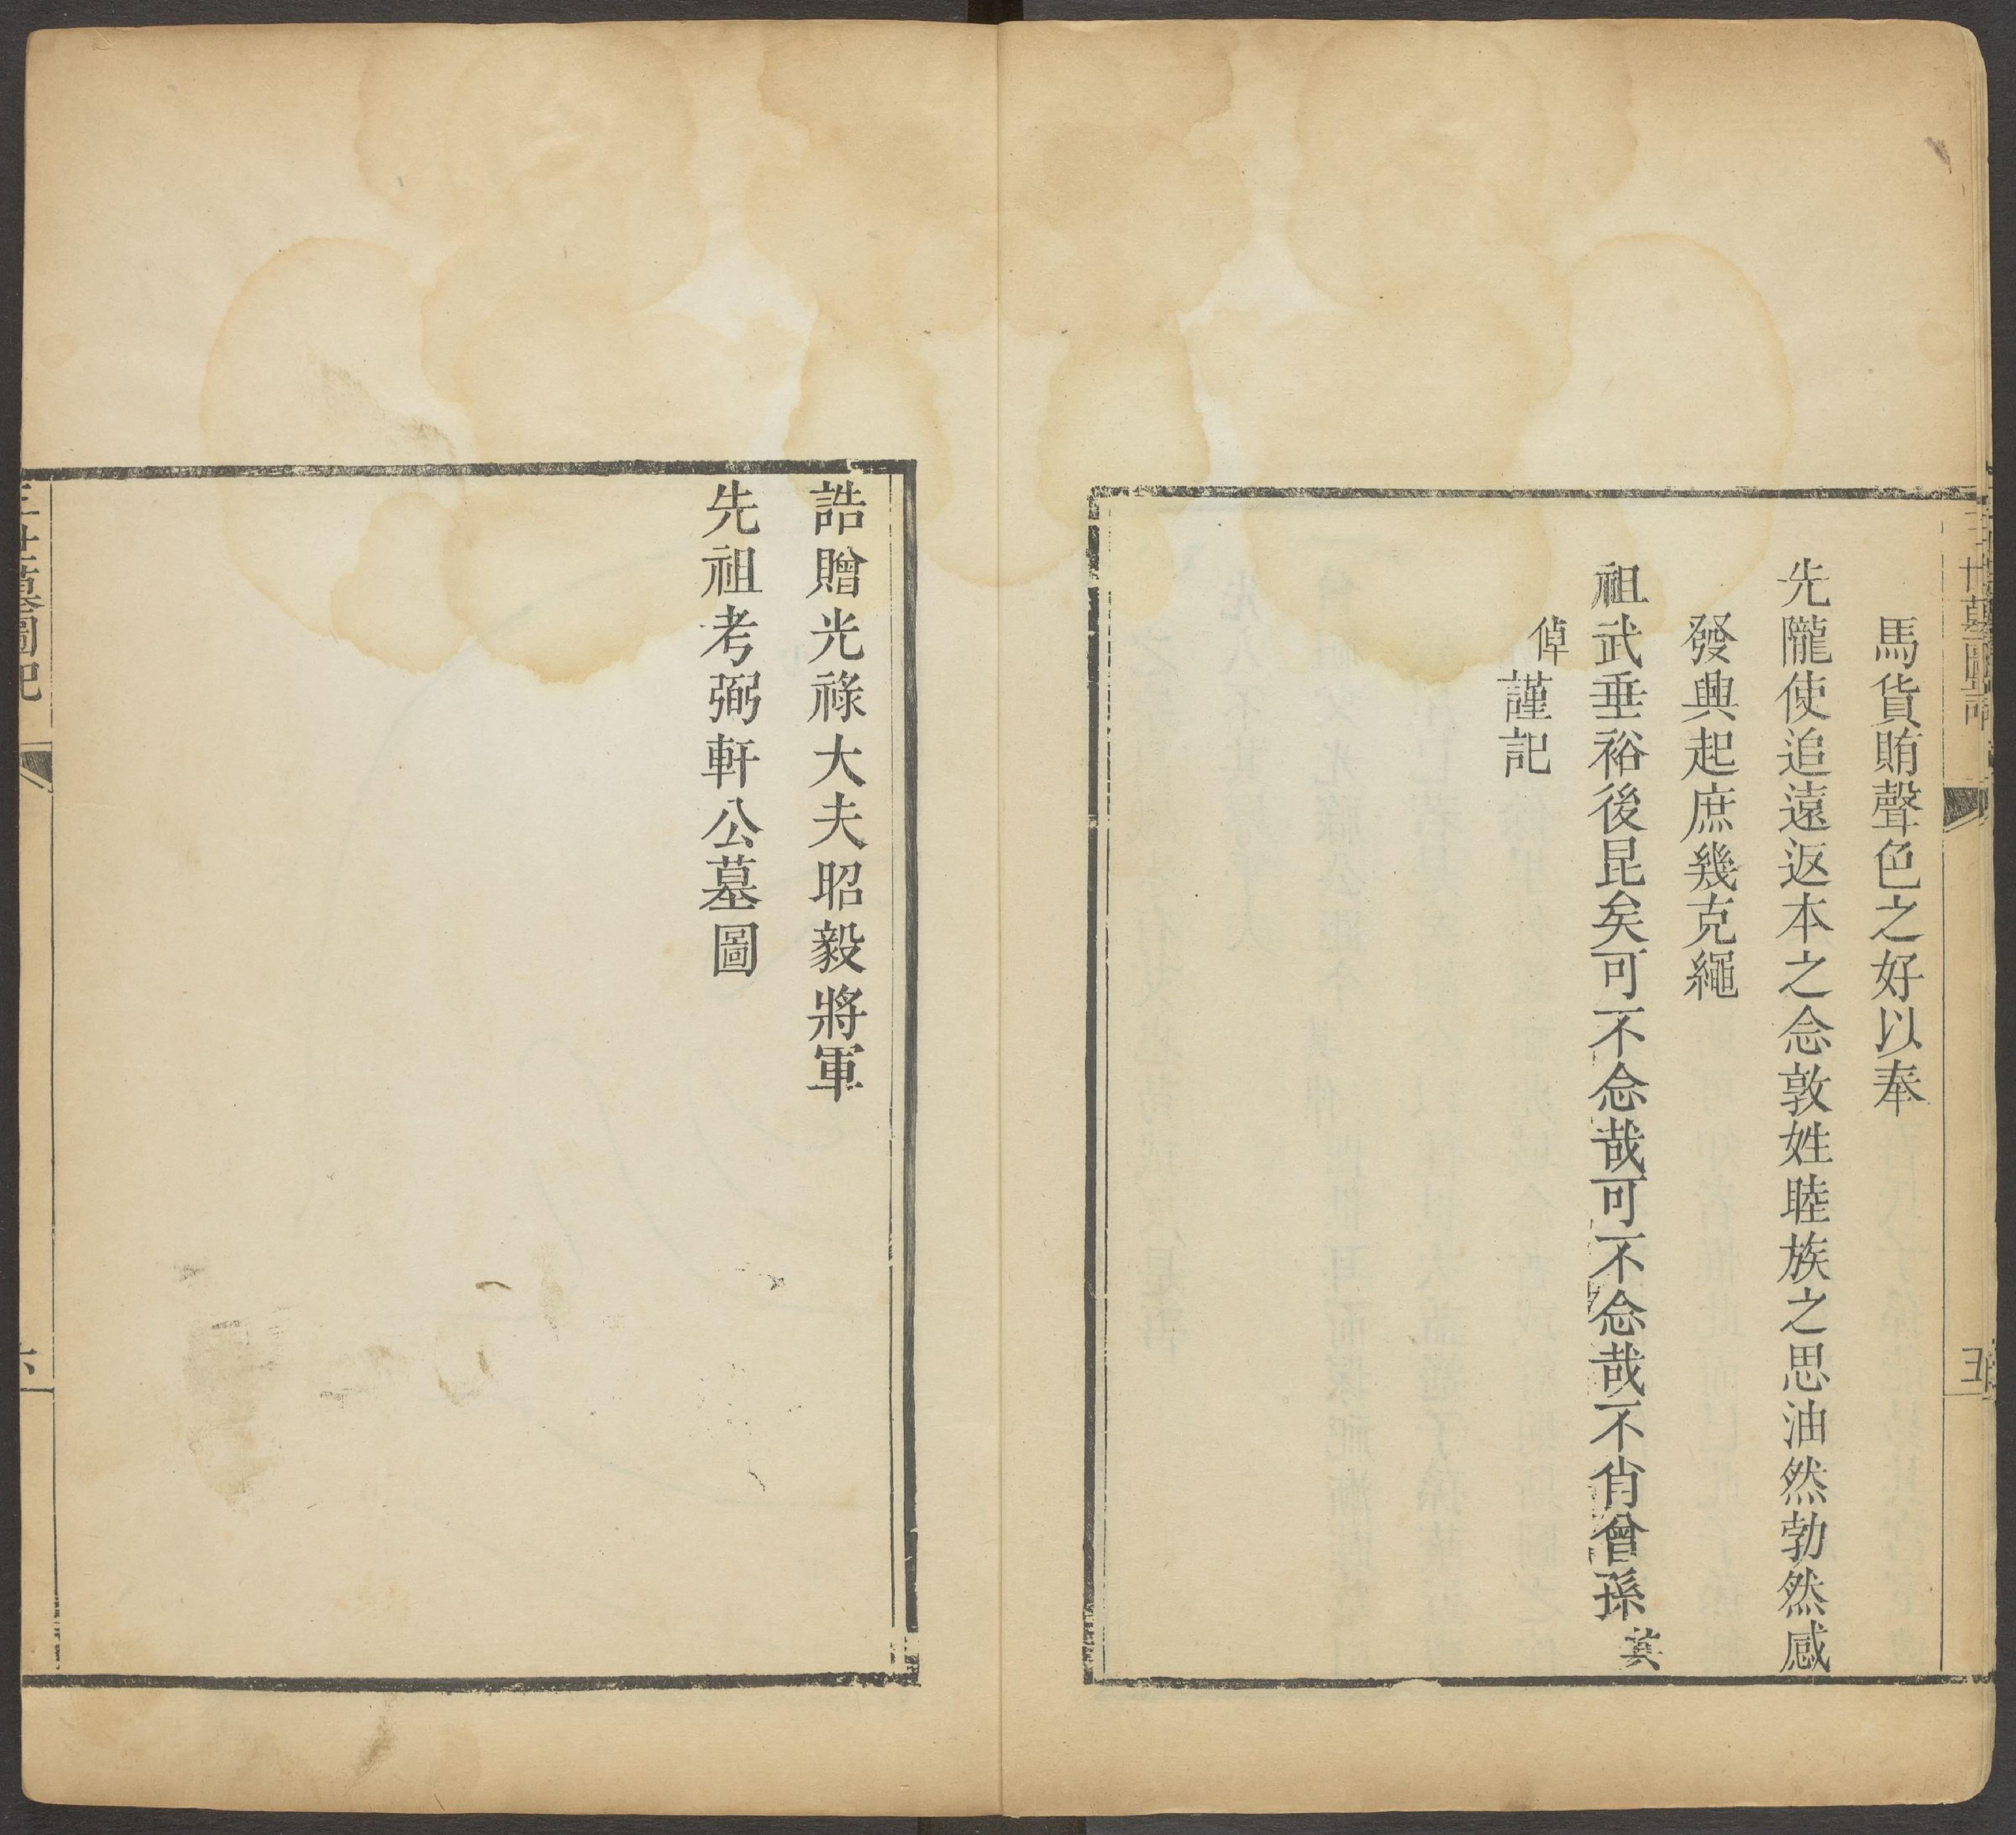 三世墓圖記
五
馬貨賄聲色之好以奉
先隴使追遠返本之念敦姓睦族之思油然勃然感
發興起庶幾克繩
祖武垂裕後昆矣可不念哉可不念哉不肖曾孫

倬謹記
誥贈光祿大夫昭毅將軍
先祖考弼軒公墓圖
三世墓圖記
六